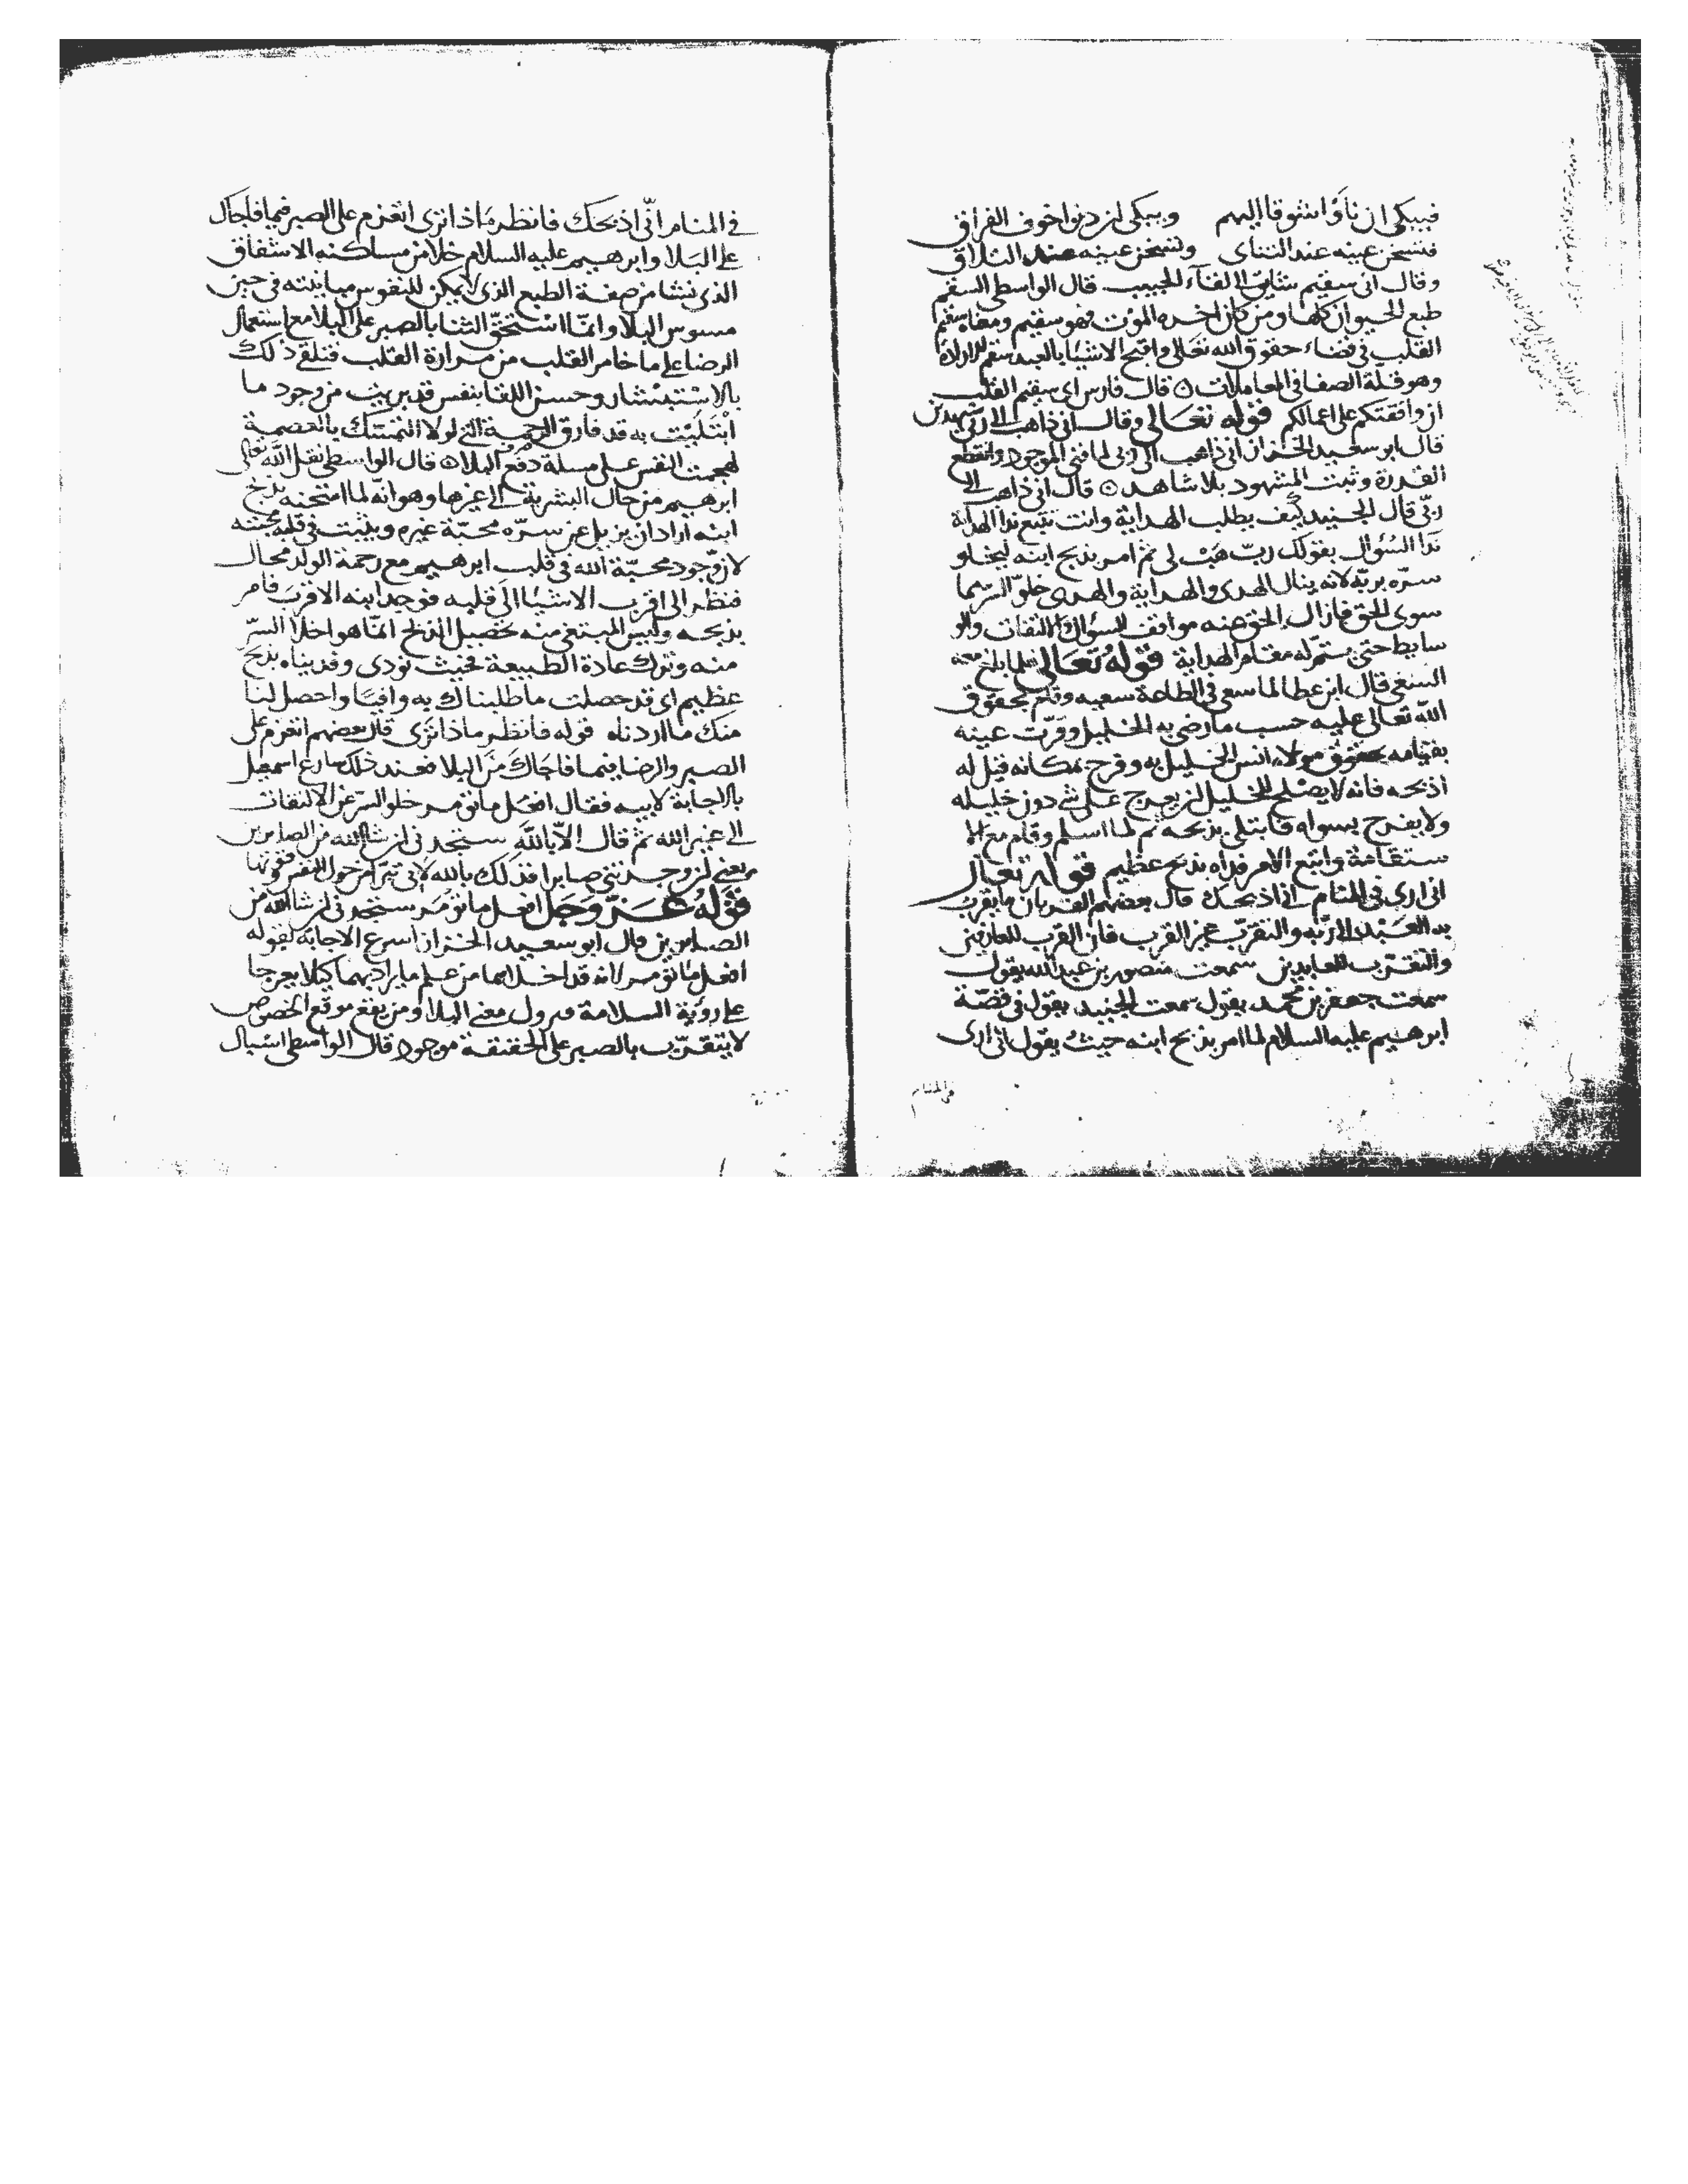 فيبكى ان ناوا شوقا اليهم ويبكى ان دنوا خوف الفراق
فتسخن عينه عند التنائ وتسخن عينه عند التلاق
وقال انى سقيم شايق الى لقاء الحبيب قال الواسطى السقم
طبع الحيوان كلها ومن كان اخره الموت فهو سقيم ومعناه سقيم
القلب فى قضاء حقوق الله تعالى واقبح الاشيا بالعبد سقم
وهو قلة الصفا فى المعاملات ۞ قال فارس اى سقيم القلب
ان وافقتكم على اعمالكم قوله تعالى وقال انى ذاهب الى ربى سيهدين
قال ابو سعيد الخزاز انى ذاهب الى ربى لما فنى الموجود وانقطع
القدرة وثبت المشهود بلا شاهد ۞ قال انى ذاهب الى
ربى قال الجنيد كيف يطلب الهداية وانت تتبع ندا الهداية
ندا السؤال بقولك رب هب لى ثم امر بذبح ابنه ليخلو
سره بربه لانه ينال الهدى والهداية والهدى خلو السر مما
سوى الحق فازال الحق عنه مواقف السؤال والالتفات والو
سايط حتى يستمر له مقام الهداية قوله تعالى فلما بلغ معه
السعى قال ابن عطا لما سعى فى الطاعة سعيه وقام بحقوق
الله تعالى عليه حسب ما رضى به الخليل وقرت عينه
بقيامه بحقوق مولاه انس الخليل به وفرح بمكانه فقيل له
اذبحه فانه لا يصلح للخليل ان يعرج على شى دون خليله
ولا يفرح بسواه فابتلى بذبحه ثم لما اسلم وقام مع الا
ستقامة واتبع الامر فداه بذبح عظيم قوله تعالى
انى ارى فى المنام انى اذبحك قال بعضهم القربان ما يقرب
به العبد الى ربه والتقرب غير القرب فان القرب للعارفين
والتقرب للعابدين سمعت منصور بن عبد الله يقول
سمعت جعفر بن محمد يقول سمعت الجنيد يقول فى قصة
ابرهيم عليه السلام لما امر بذبح ابنه حيث يقول انى ارى
فى المنام
فى المنام انى اذبحك فانظر ماذا ترى اتعزم على الصبر فيما فاجاك
على البلا وابرهيم عليه السلام خلا من مساكنه الاشفاق
الذى نشا من صفة الطبع الذى لا يمكن للنفوس مباينته فى حين
مسوس البلا وانما استحق الثنا بالصبر على البلا مع استعمال
الرضا على ما خامر القلب من مرارة القلب فتلقى ذلك
بالاستبشار وحسن اللقا بنفس قد بريت من وجود ما
ابتليت به قد فارق الرحمة التى لولا التمسك بالعصمة
لهجمت النفس على مسلة دفع البلا ۞ قال الواسطى نقل الله تعالى
ابرهيم من حال البشرية الى غيرها وهو انه لما امتحنه بذبح
ابنه اراد ان يزيل عن سره محبة غيره ويثبت فى قلبه محبته
لان وجود محبة الله فى قلب ابرهيم مع رحمة الولد محال
فنظر الى اقرب الاشيا الى قلبه فوجد ابنه الاقرب فامر
بذبحه وليس المبتغى منه تحصيل الذبح انما هو اخلا السر
منه وترك عادة الطبيعة فحيث نودى وفديناه بذبح
عظيم اى قد حصلت ما طلبناك به وافيا واحصل لنا
منك ما اردناه قوله فانظر ماذا ترى قال بعضهم اتعزم على
الصبر والرضا فيما فاجاك من البلا فعند ذلك سارع اسمعيل
بالاجابة لابيه فقال افعل ما تؤمر خلو السر عن الالتفات
الى غير الله ثم قال الا بالله ستجدنى ان شا الله من الصابرين
يعنى ان وجدتنى صابرا فذلك بالله لانى تبرا من حول النفس وقوتها
قوله عز وجل افعل ما تؤمر ستجدنى ان شا الله من
الصابرين قال ابو سعيد الخزاز اسرع الاجابة لقوله
افعل ما تؤمر لانه قد اخلاهما من علم ما يراد بهما كيلا يعرجا
على رؤية السلامة فيزول معنى البلا ومن يقع موقع الخصوص
لا يتقرب بالصبر على الحقيقة موجود قال الواسطى اسبال